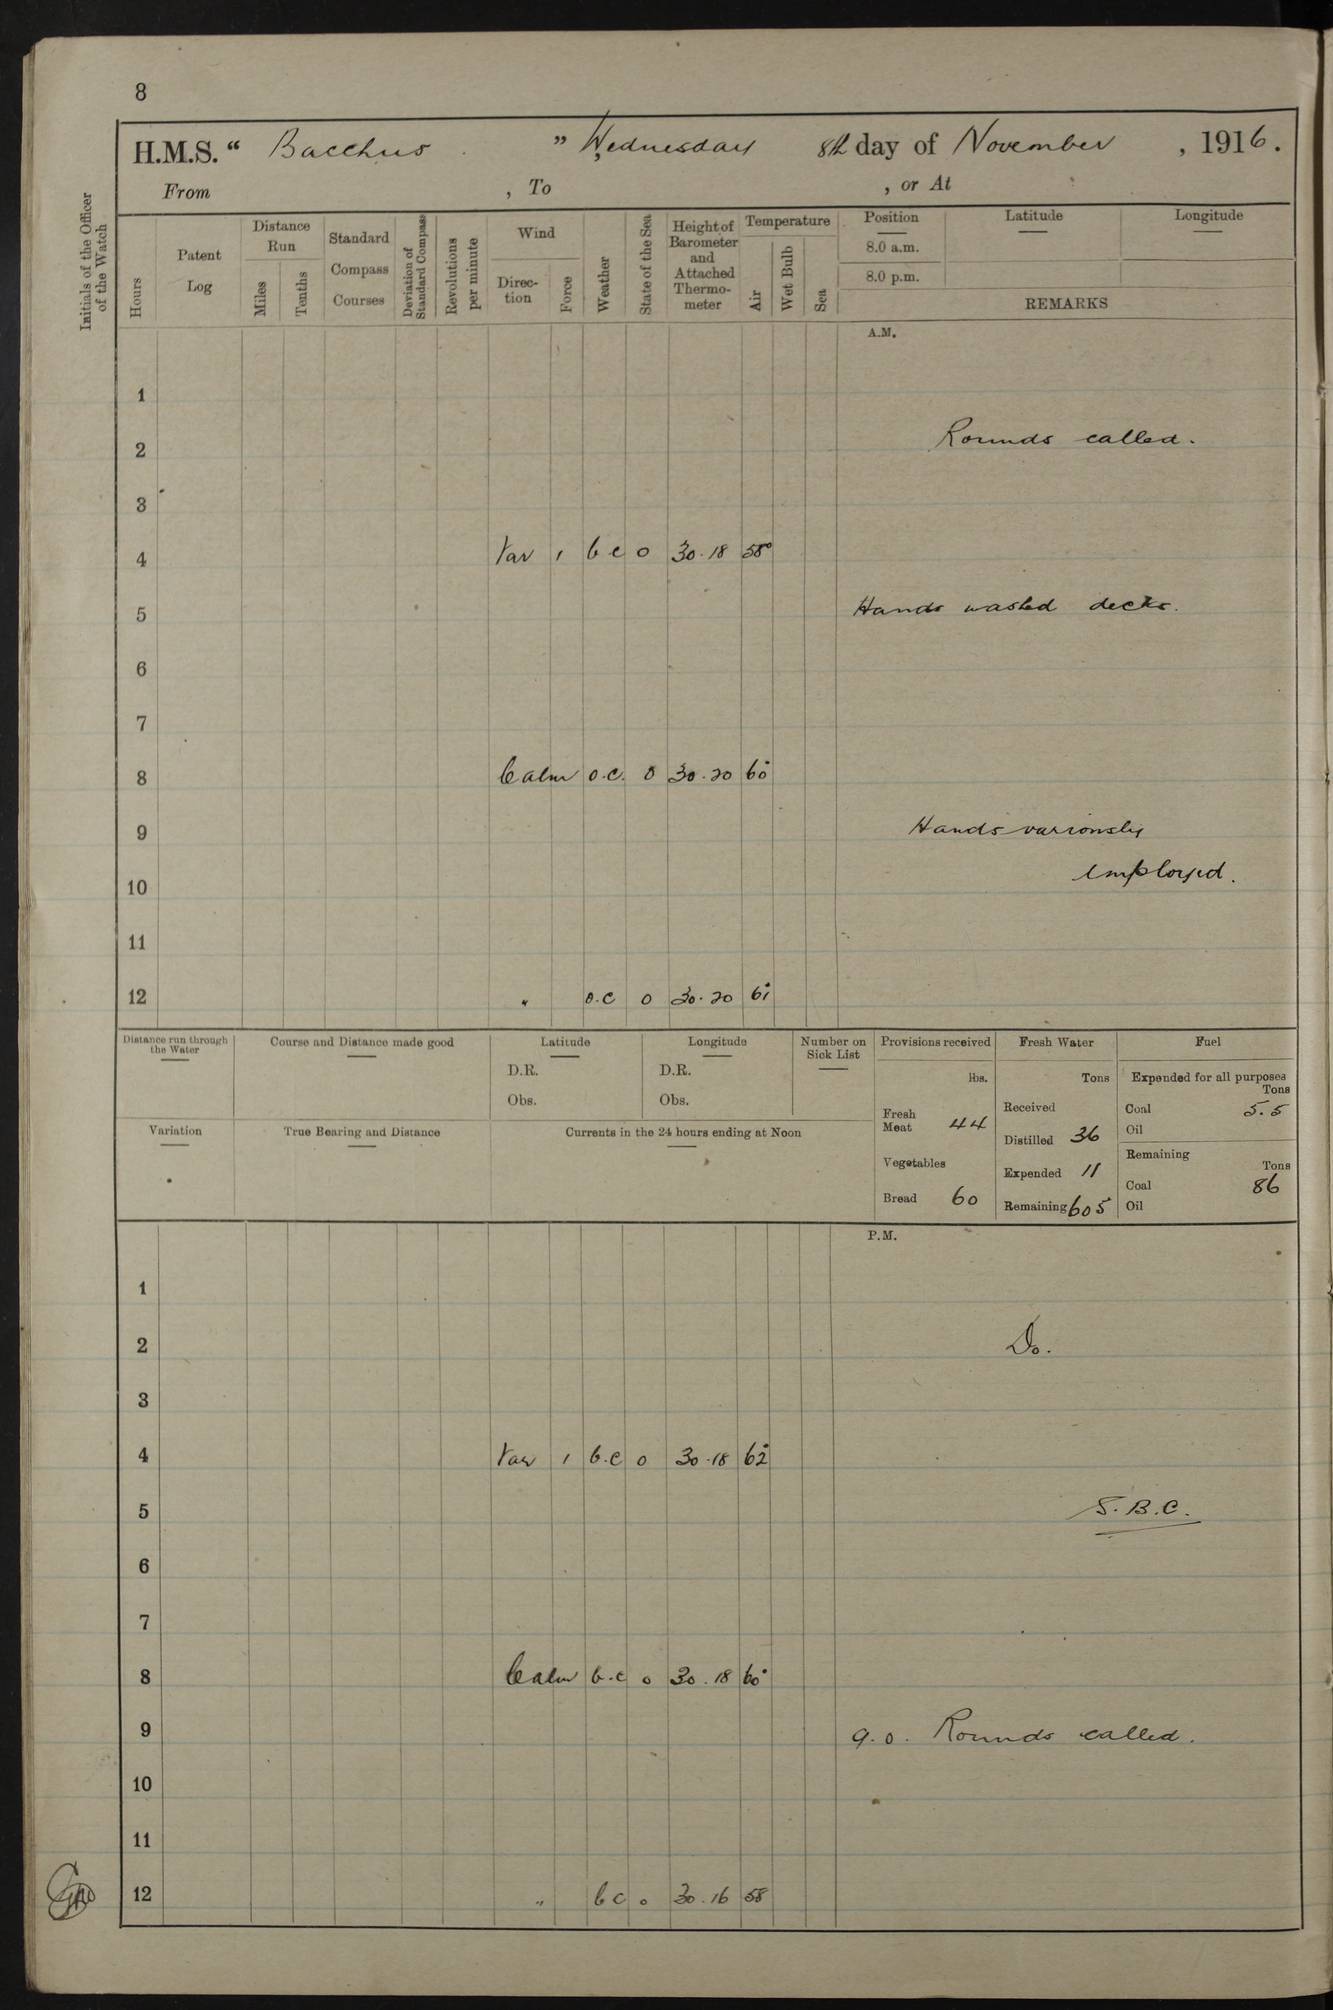 8
H.M.S. “ Bacchus ” Wednesday 8th day of November , 1916.
From , To , or At
Initials of the Officer of the Watch
Hours
Patent Log
Distance Run
Miles
Tenths
Standard Compass Courses
Deviation of Standard Compass
Revolutions per minute
Wind
Direction
Force
Weather
State of the Sea
Height of Barometer and Attached Thermometer
Temperature
Air
Wet Bulb
Sea
Position Latitude Longitude
8.0 a.m.
8.0 p.m.
REMARKS
A.M.
1
2 Rounds called.
3
4 Var 1 b c 0 30.18 58°
5 Hands washed decks.
6
7
8 Calm o.c. 0 30.20 60°
9 Hands variously
10 employed.
11
12 " o.c 0 30.20 61°
Distance run through the Water
Course and Distance made good
Latitude
D.R.
Obs.
Longitude
D.R.
Obs.
Number on Sick List
Provisions received
lbs.
Fresh Meat 44
Vegetables
Bread 60
Fresh Water
Tons
Received
Distilled 36
Expended 11
Remaining 605
Fuel
Expended for all purposes
Tons
Coal 5.5
Oil
Remaining
Tons
Coal 86
Oil
Variation
True Bearing and Distance
Currents in the 24 hours ending at Noon
P.M.
1
2 Do.
3
4 Var 1 b.c 0 30.18 62°
5 S.B.C.
6
7
8 Calm b.c 0 30.18 60°
9 9.0. Rounds called.
10
11
12 " b c 0 30.16 58